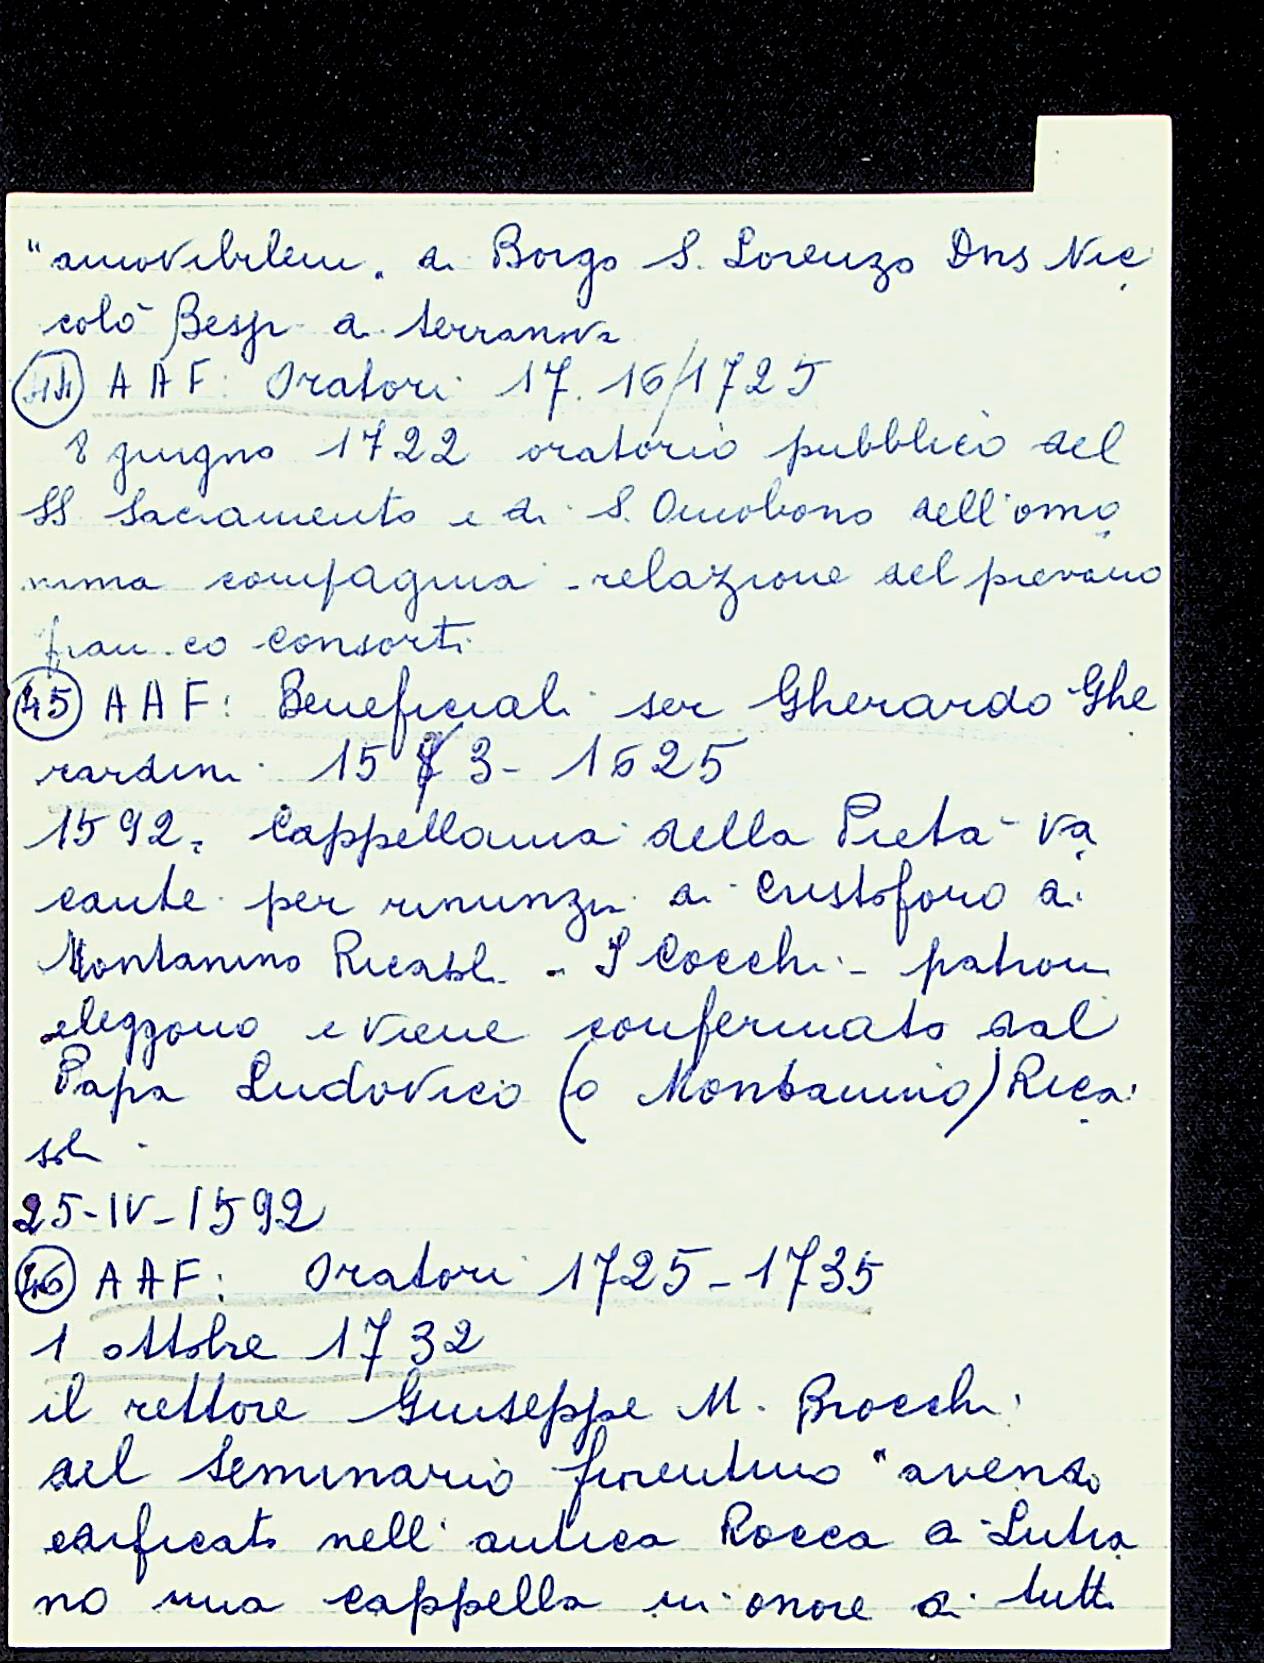 "amovibilem" di Borgo S. Lorenzo Dns Nic
colò Besp di terranova
44 AAF: Oratori 17.16/1725
8 giugno 1722 oratorio pubblico del
SS Sacramento e di S. Omobono dell'omo
nima compagnia - relazione del pievano
fran.co Consorti
45 AAF: Beneficiali ser Gherardo Ghe
rardini 15 3 - 1625
1592. Cappellania della Pietà va
cante per rinunzia di Cristoforo di
Montanino Ricasoli - I Cocchi - patroni
eleggono e viene confermato dal
Papa Ludovico (o Montanino) Rica
soli
25-IV-1592
46 AAF: Oratori 1725-1735
1 ottobre 1732
il rettore Giuseppe M. Brocchi
del Seminario fiorentino "avendo
edificato nell'antica Rocca di Lutia
no una cappella in onore di tutti